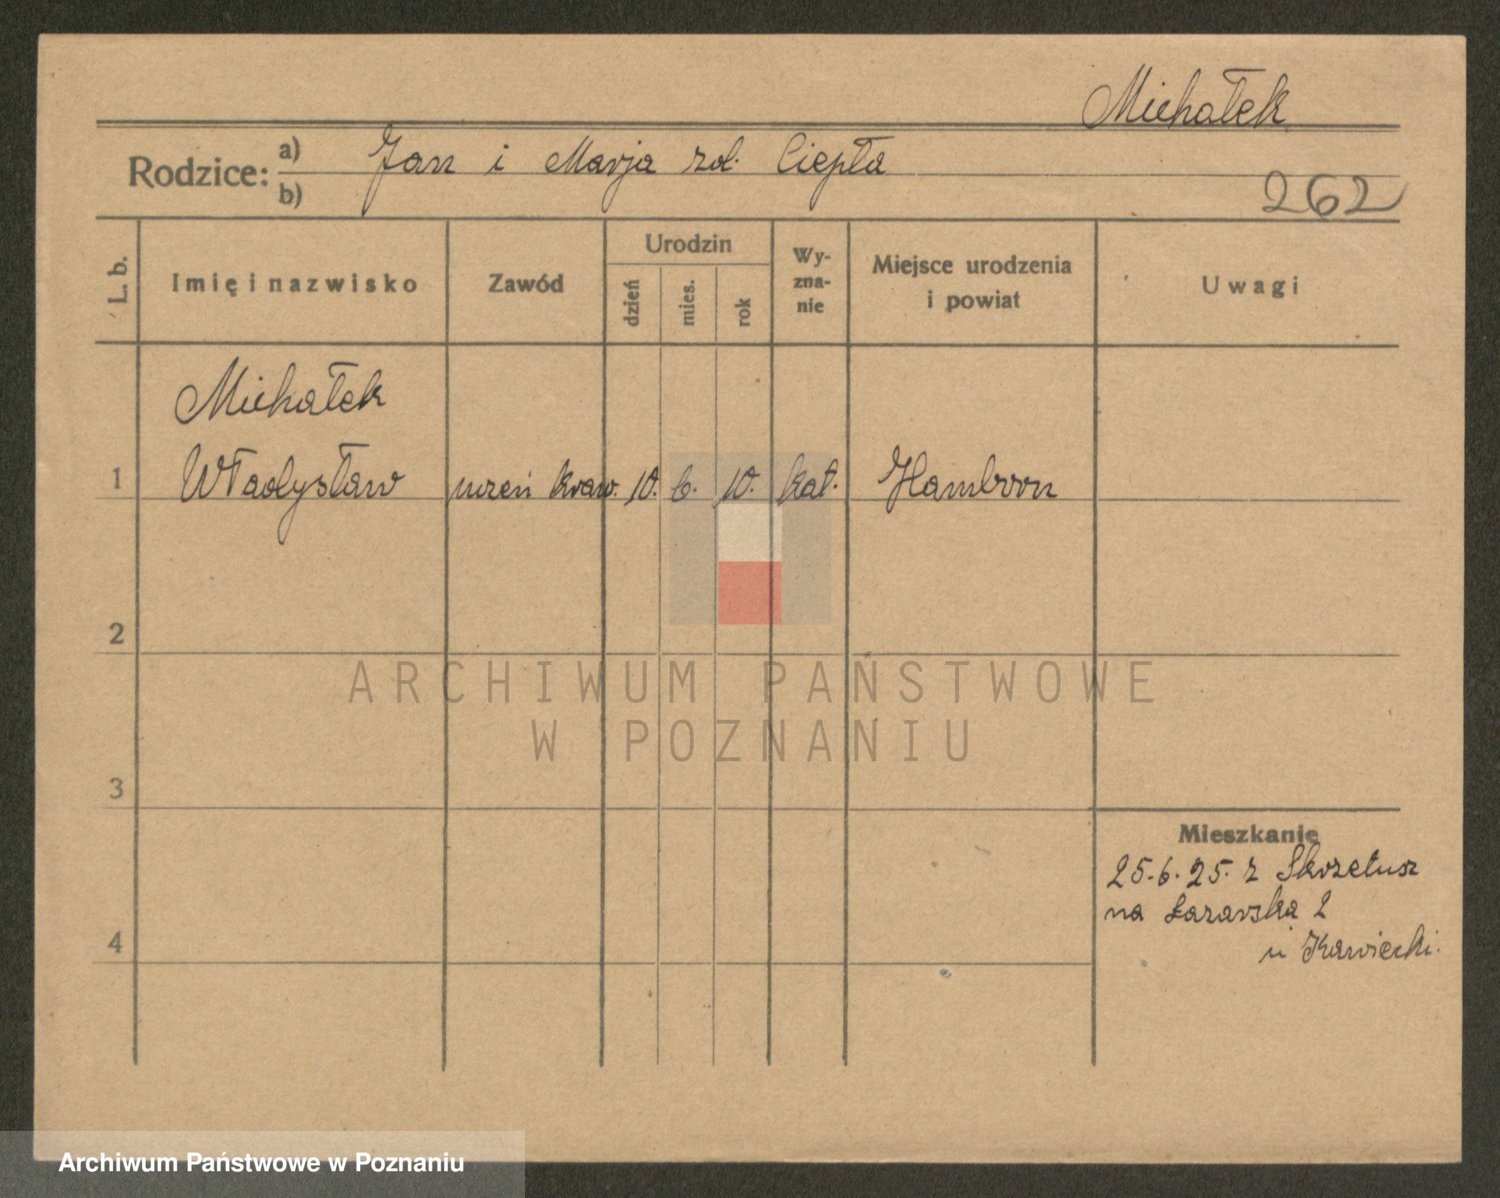 Michałek
Rodzice: a) Jan i Marja zd. Ciepła
b)
262
L. b.
Imię i nazwisko
Zawód
Urodzin
dzień
mies.
rok
Wy-
zna-
nie
Miejsce urodzenia
i powiat
Uwagi
Michałek
1 Władysław uczeń kraw. 10. 6. 10. kat. Hamborn
2
3
4
Mieszkanie
25.6.25. z Skrzetusz
na Łazarska 2
u Kawiecki.
ARCHIWUM PAŃSTWOWE
W POZNANIU
Archiwum Państwowe w Poznaniu